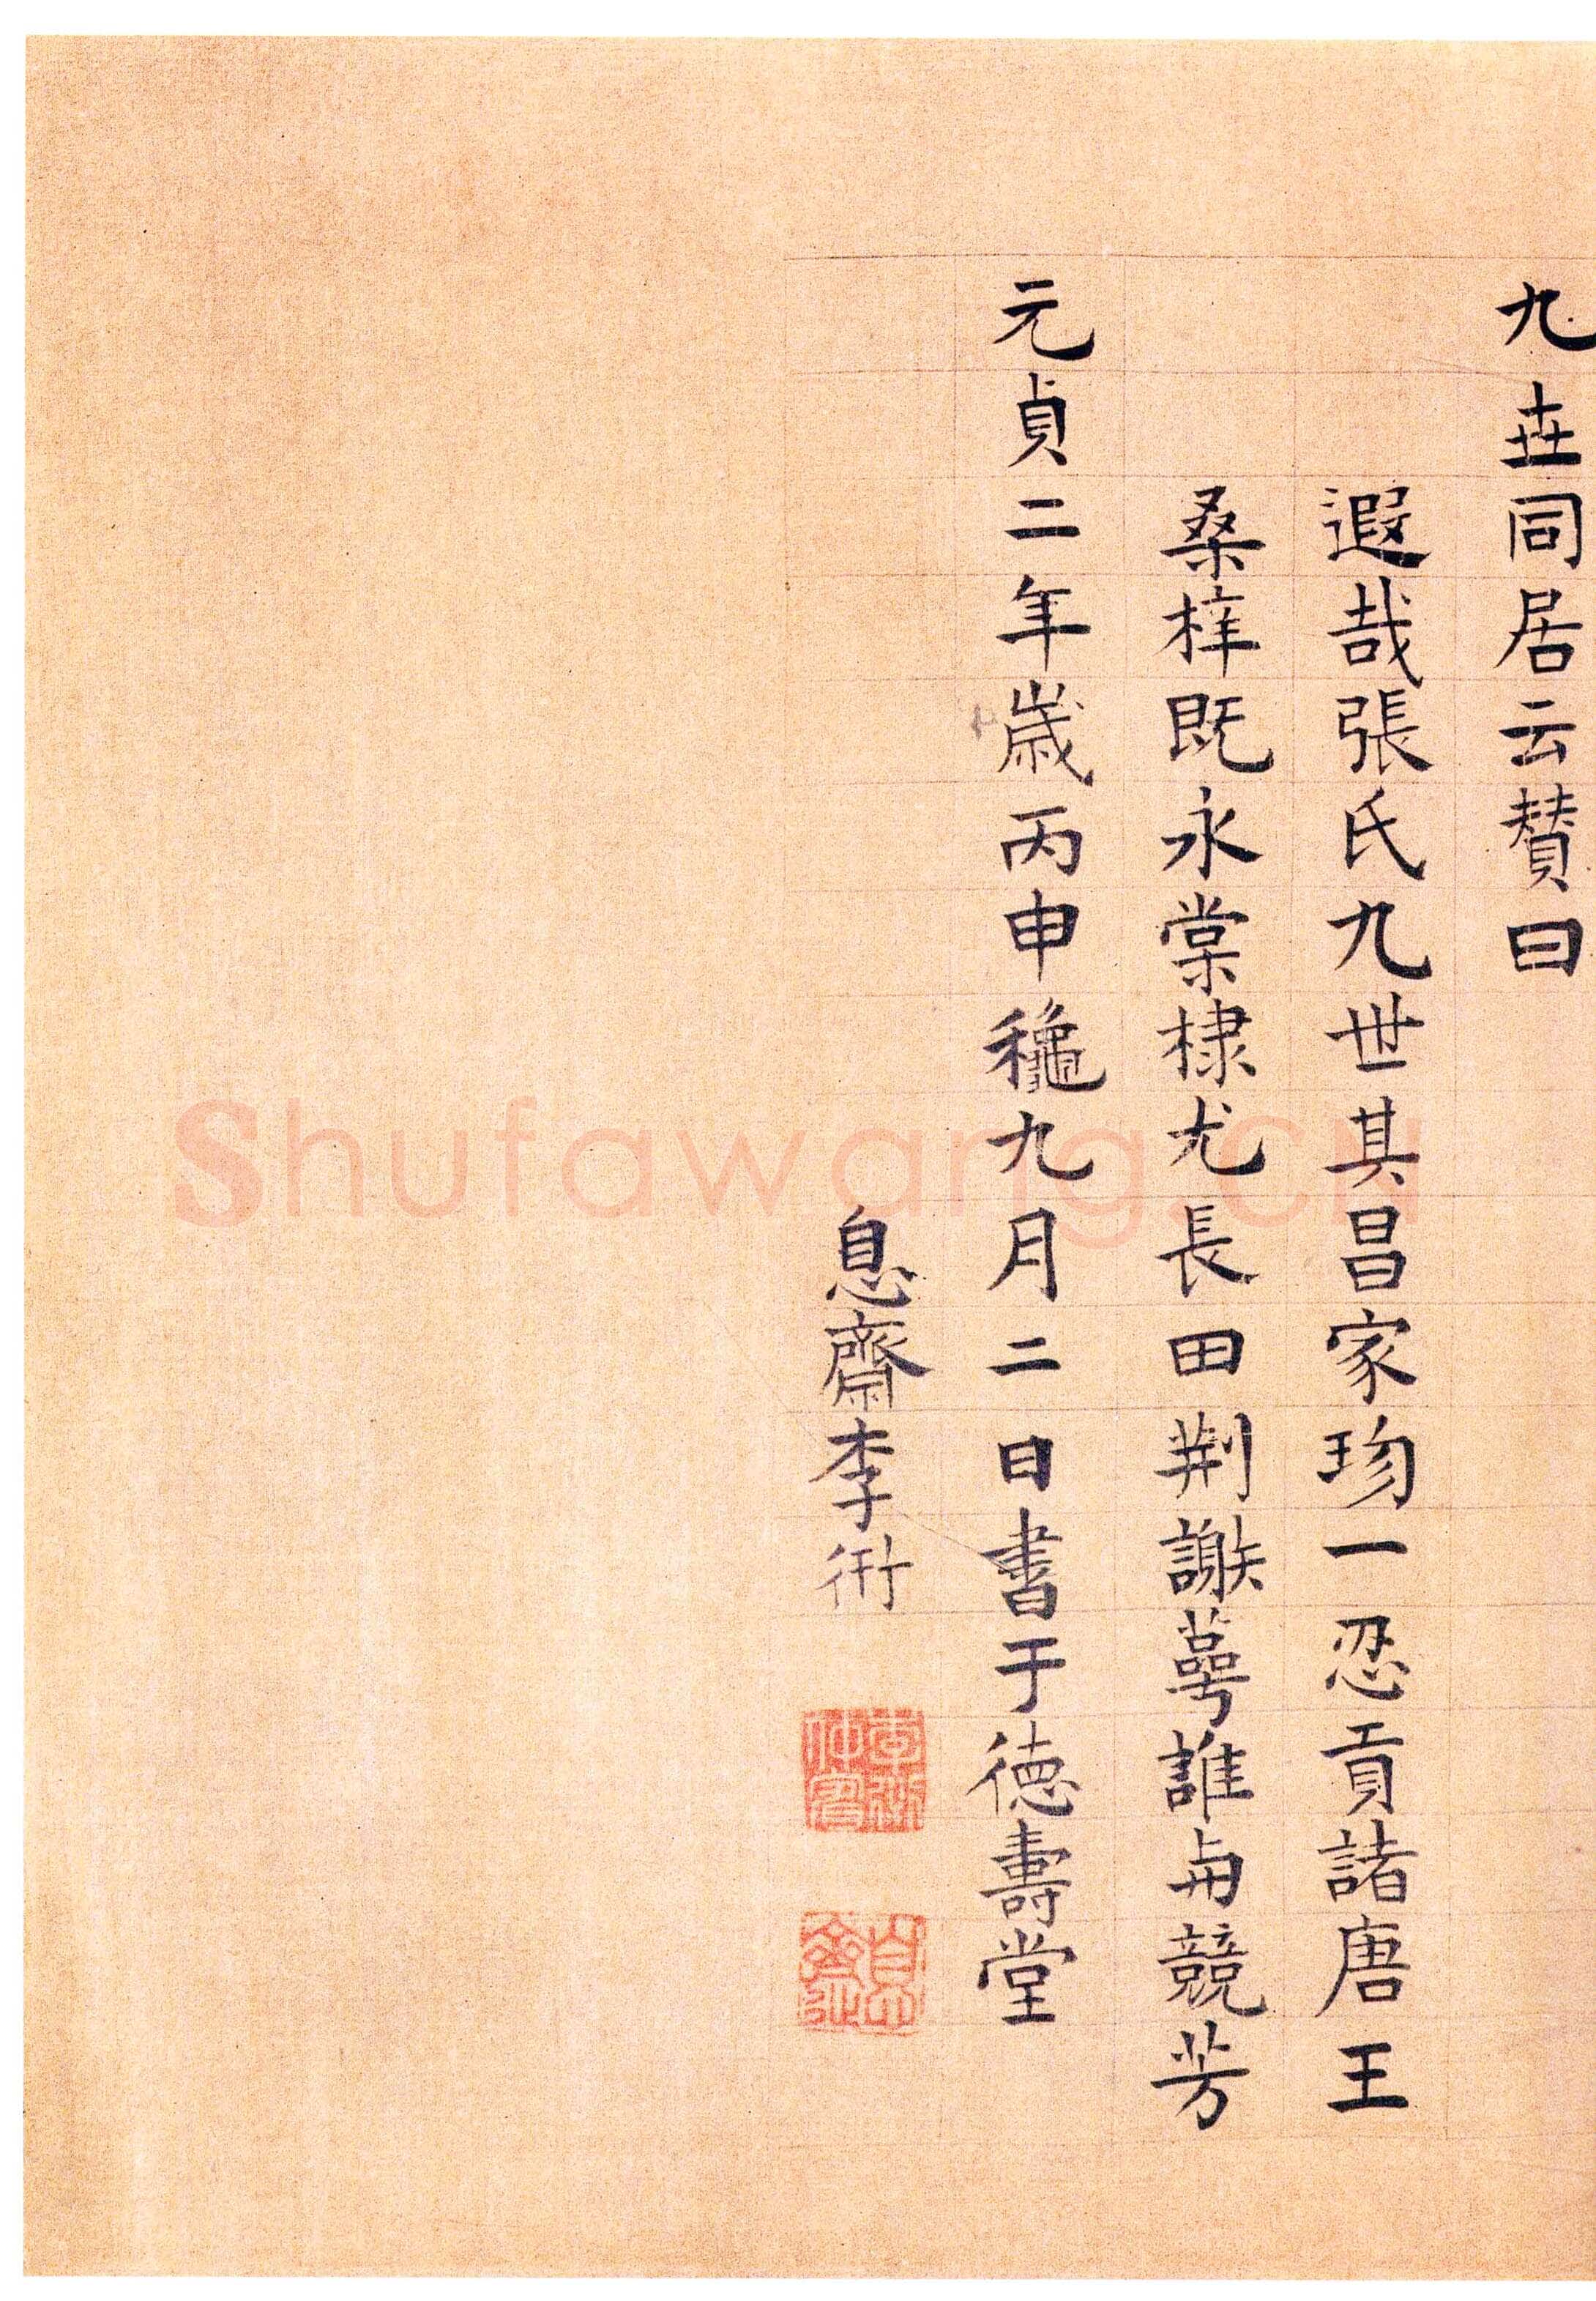 九世同居云贊曰
遐哉張氏九世其昌家珎一忍貢諸唐王
桑梓既永棠棣尤長田荆謝萼誰與競芳
元貞二年歲丙申穐九月二日書于德壽堂
息齋李衎
李衎仲賓
息齋
Shufawang.cn